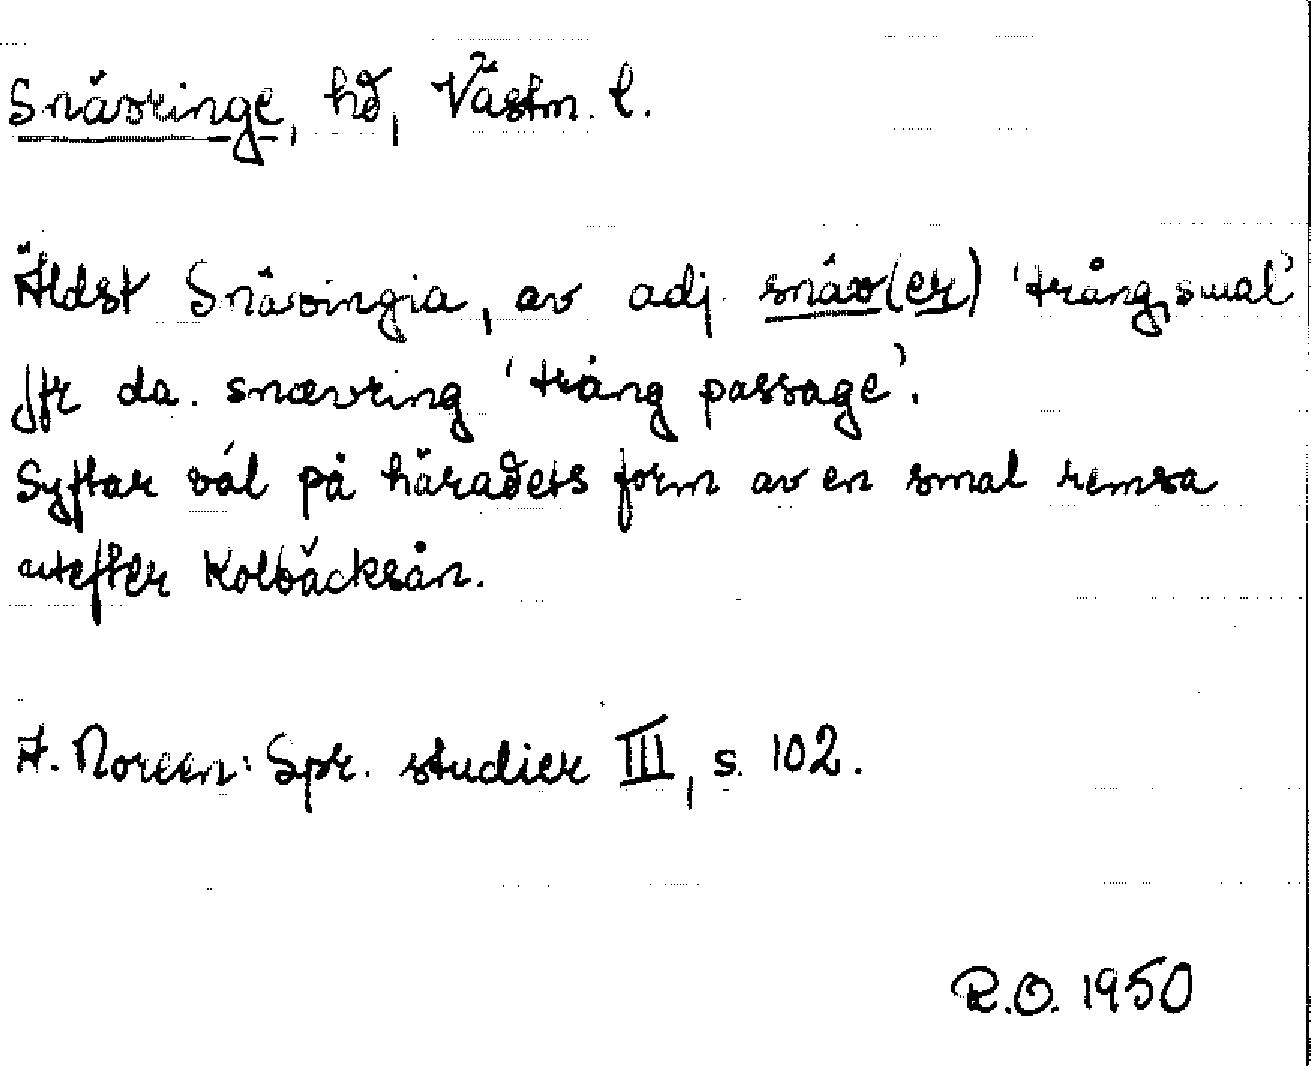 Snävringe, hd, Västm. l.
Äldst Snävingia, av adj. snäv(er) 'trång, smal'
Jfr da. snævring 'trång passage'.
Syftar väl på häradets form av en smal remsa
utefter Kolbäcksån.
A. Noreen: Spr. studier III, s. 102.
R.O. 1950